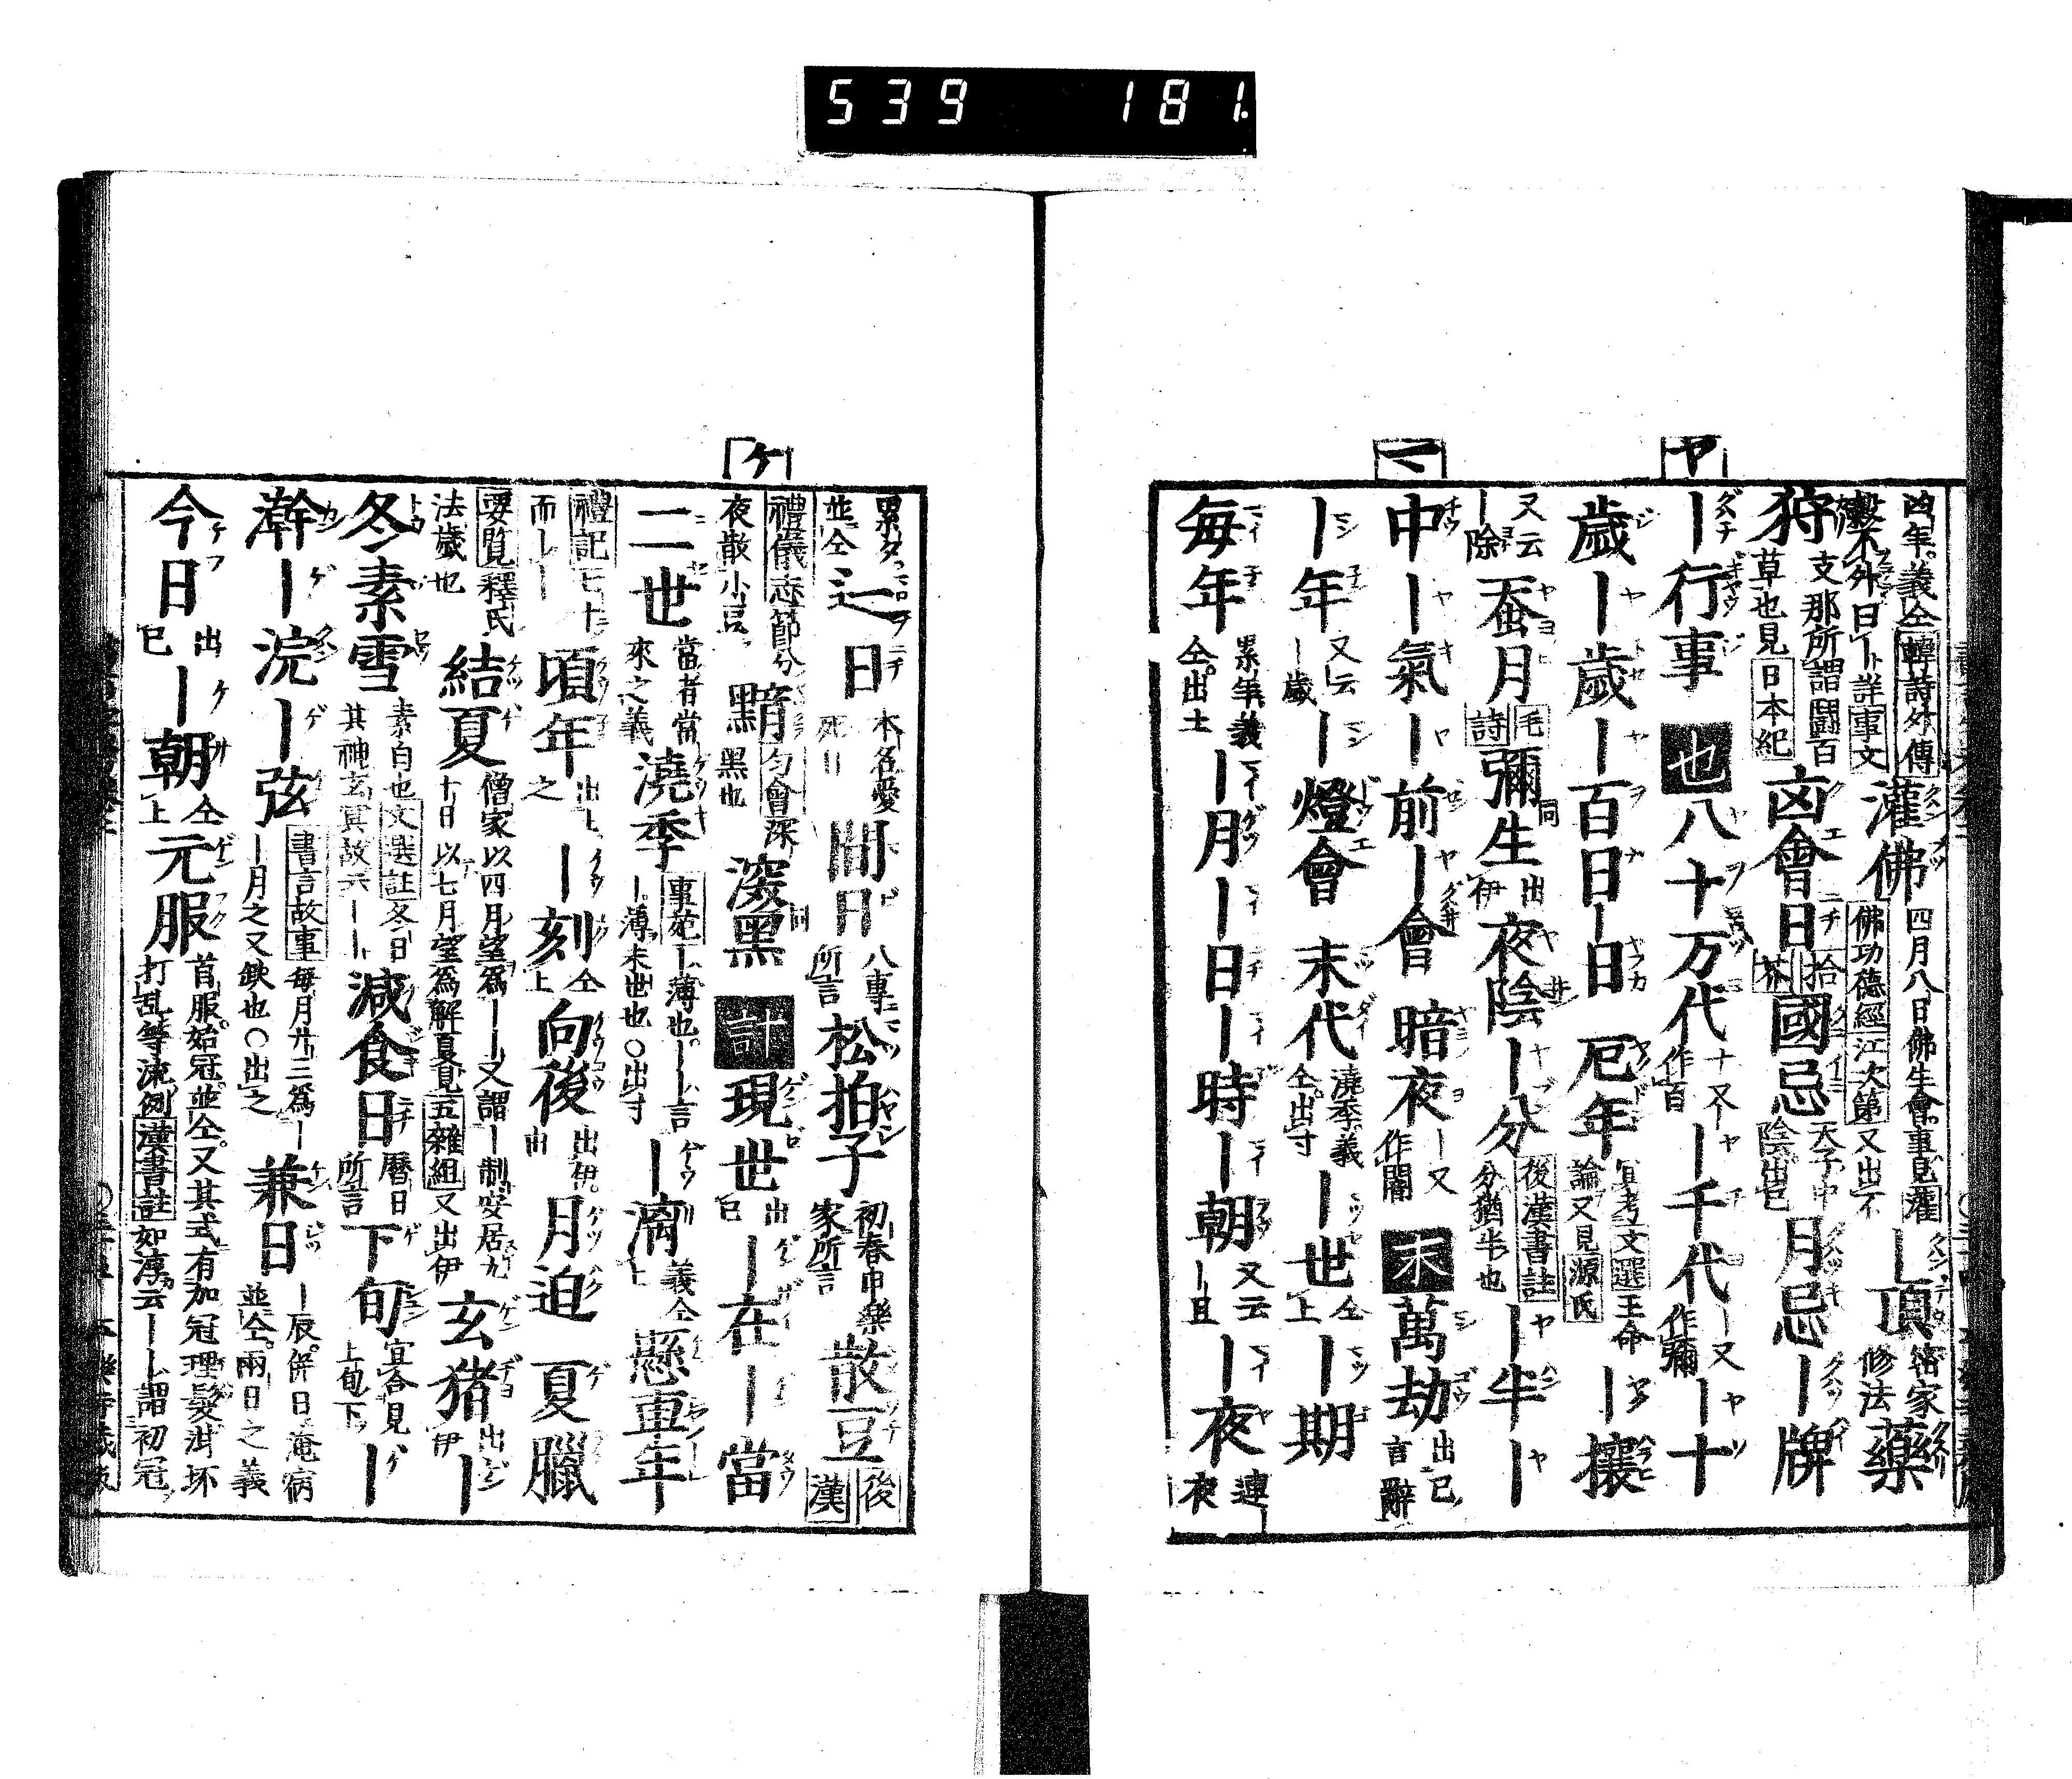 539 181.
ヤ
マ
凶年。義仝韓詩外傳
穀不外曰
詳事文
灌佛
四月八日佛生會。事見灌
佛功德經江次第又出不
頂
密家
修法
藥
狩
支那所謂鬪百
草也見日本紀
凶會日
拾
芥
國忌
天子中
陰出已
月忌ー牌
ー行事
也
八十万代
十又ー
作百
ー千代
ー又
作彌
ー十
歲ー歲ー百日ー日
厄年
宜考文選王命
論又見源氏
ー攘
又云
ー除
蚕月
毛
詩
彌生
出
伊
夜陰ー分
後漢書註
分猶半也
ー半ー
中ー氣ー前ー會
暗夜
ー又
作闇
末
萬劫
出已
言辭
ー年
又云
ー歲
ー燈會
末代
澆季義
仝。出寸
ー世
仝
上
ー期
每年
累年義
仝。出土
ー月ー日ー時ー朝
又云
ー旦
ー夜
連
夜
ケ
並仝
日
本名愛
間日
八專
所言
松拍子
初春申樂
家所言
散豆
後
漢
禮儀志節分
夜散小豆
黯
勻會深
黑也
深黑
計
現世
出
已
ー在ー當
二世
當者當
來之義
澆季
事苑ー薄也。ーー言
ー薄末世也○出寸
ー漓
義仝
上
懸車年
禮記七十
而ーー
頃年
出上
之
ー刻
仝
上
向後
出伊
由
月迫
夏臘
要覽釋氏
法歲也
結夏
僧家以四月望爲ーー又謂ー制安居九
十日以七月望爲解夏見五雜組又出伊
玄猪
出
伊
ー
冬素雪
素白也文選註冬日
其神玄冥故云ーー
減食日
曆日
所言
下旬
宜合見
上旬下
ー
澣ー浣ー弦
書言故事每月廿三爲ー
ー月之又缺也○出之
兼日
ー辰。併日淹病
並仝。兩日之義
今日
出
已
ー朝
仝
上
元服
首服。始冠並仝。又其式有加冠理髮泔坏
打乱等流例漢書註如淳云ーー謂初冠